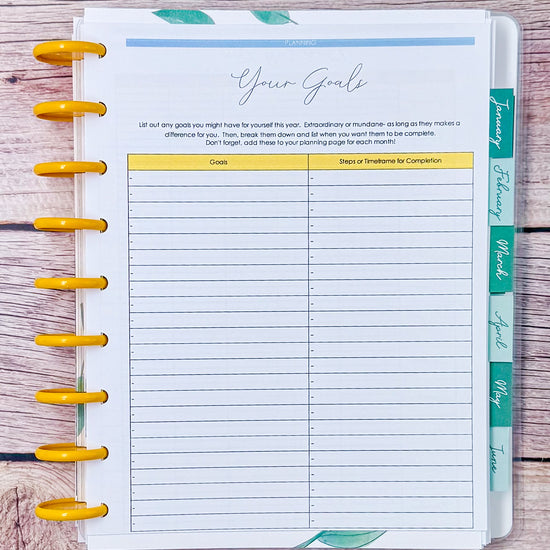 PLANNING
Your Goals
List out any goals you might have for yourself this year. Extraordinary or mundane- as long as they makes a
difference for you. Then, break them down and list when you want them to be complete.
Don't forget, add these to your planning page for each month!
Goals
Steps or Timeframe for Completion
January
February
March
April
May
June